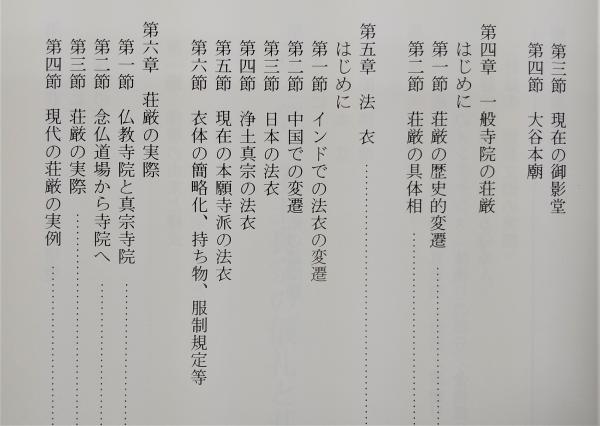 第三節　現在の御影堂
第四節　大谷本廟
第四章　一般寺院の荘厳
はじめに
第一節　荘厳の歴史的変遷……………………
第二節　荘厳の具体相…………………………
第五章　法　衣……………………………………
はじめに
第一節　インドでの法衣の変遷
第二節　中国での変遷
第三節　日本の法衣
第四節　浄土真宗の法衣
第五節　現在の本願寺派の法衣
第六節　衣体の簡略化、持ち物、服制規定等
第六章　荘厳の実際
第一節　仏教寺院と真宗寺院……………………
第二節　念仏道場から寺院へ……………………
第三節　荘厳の実際………………………………
第四節　現代の荘厳の実例………………………